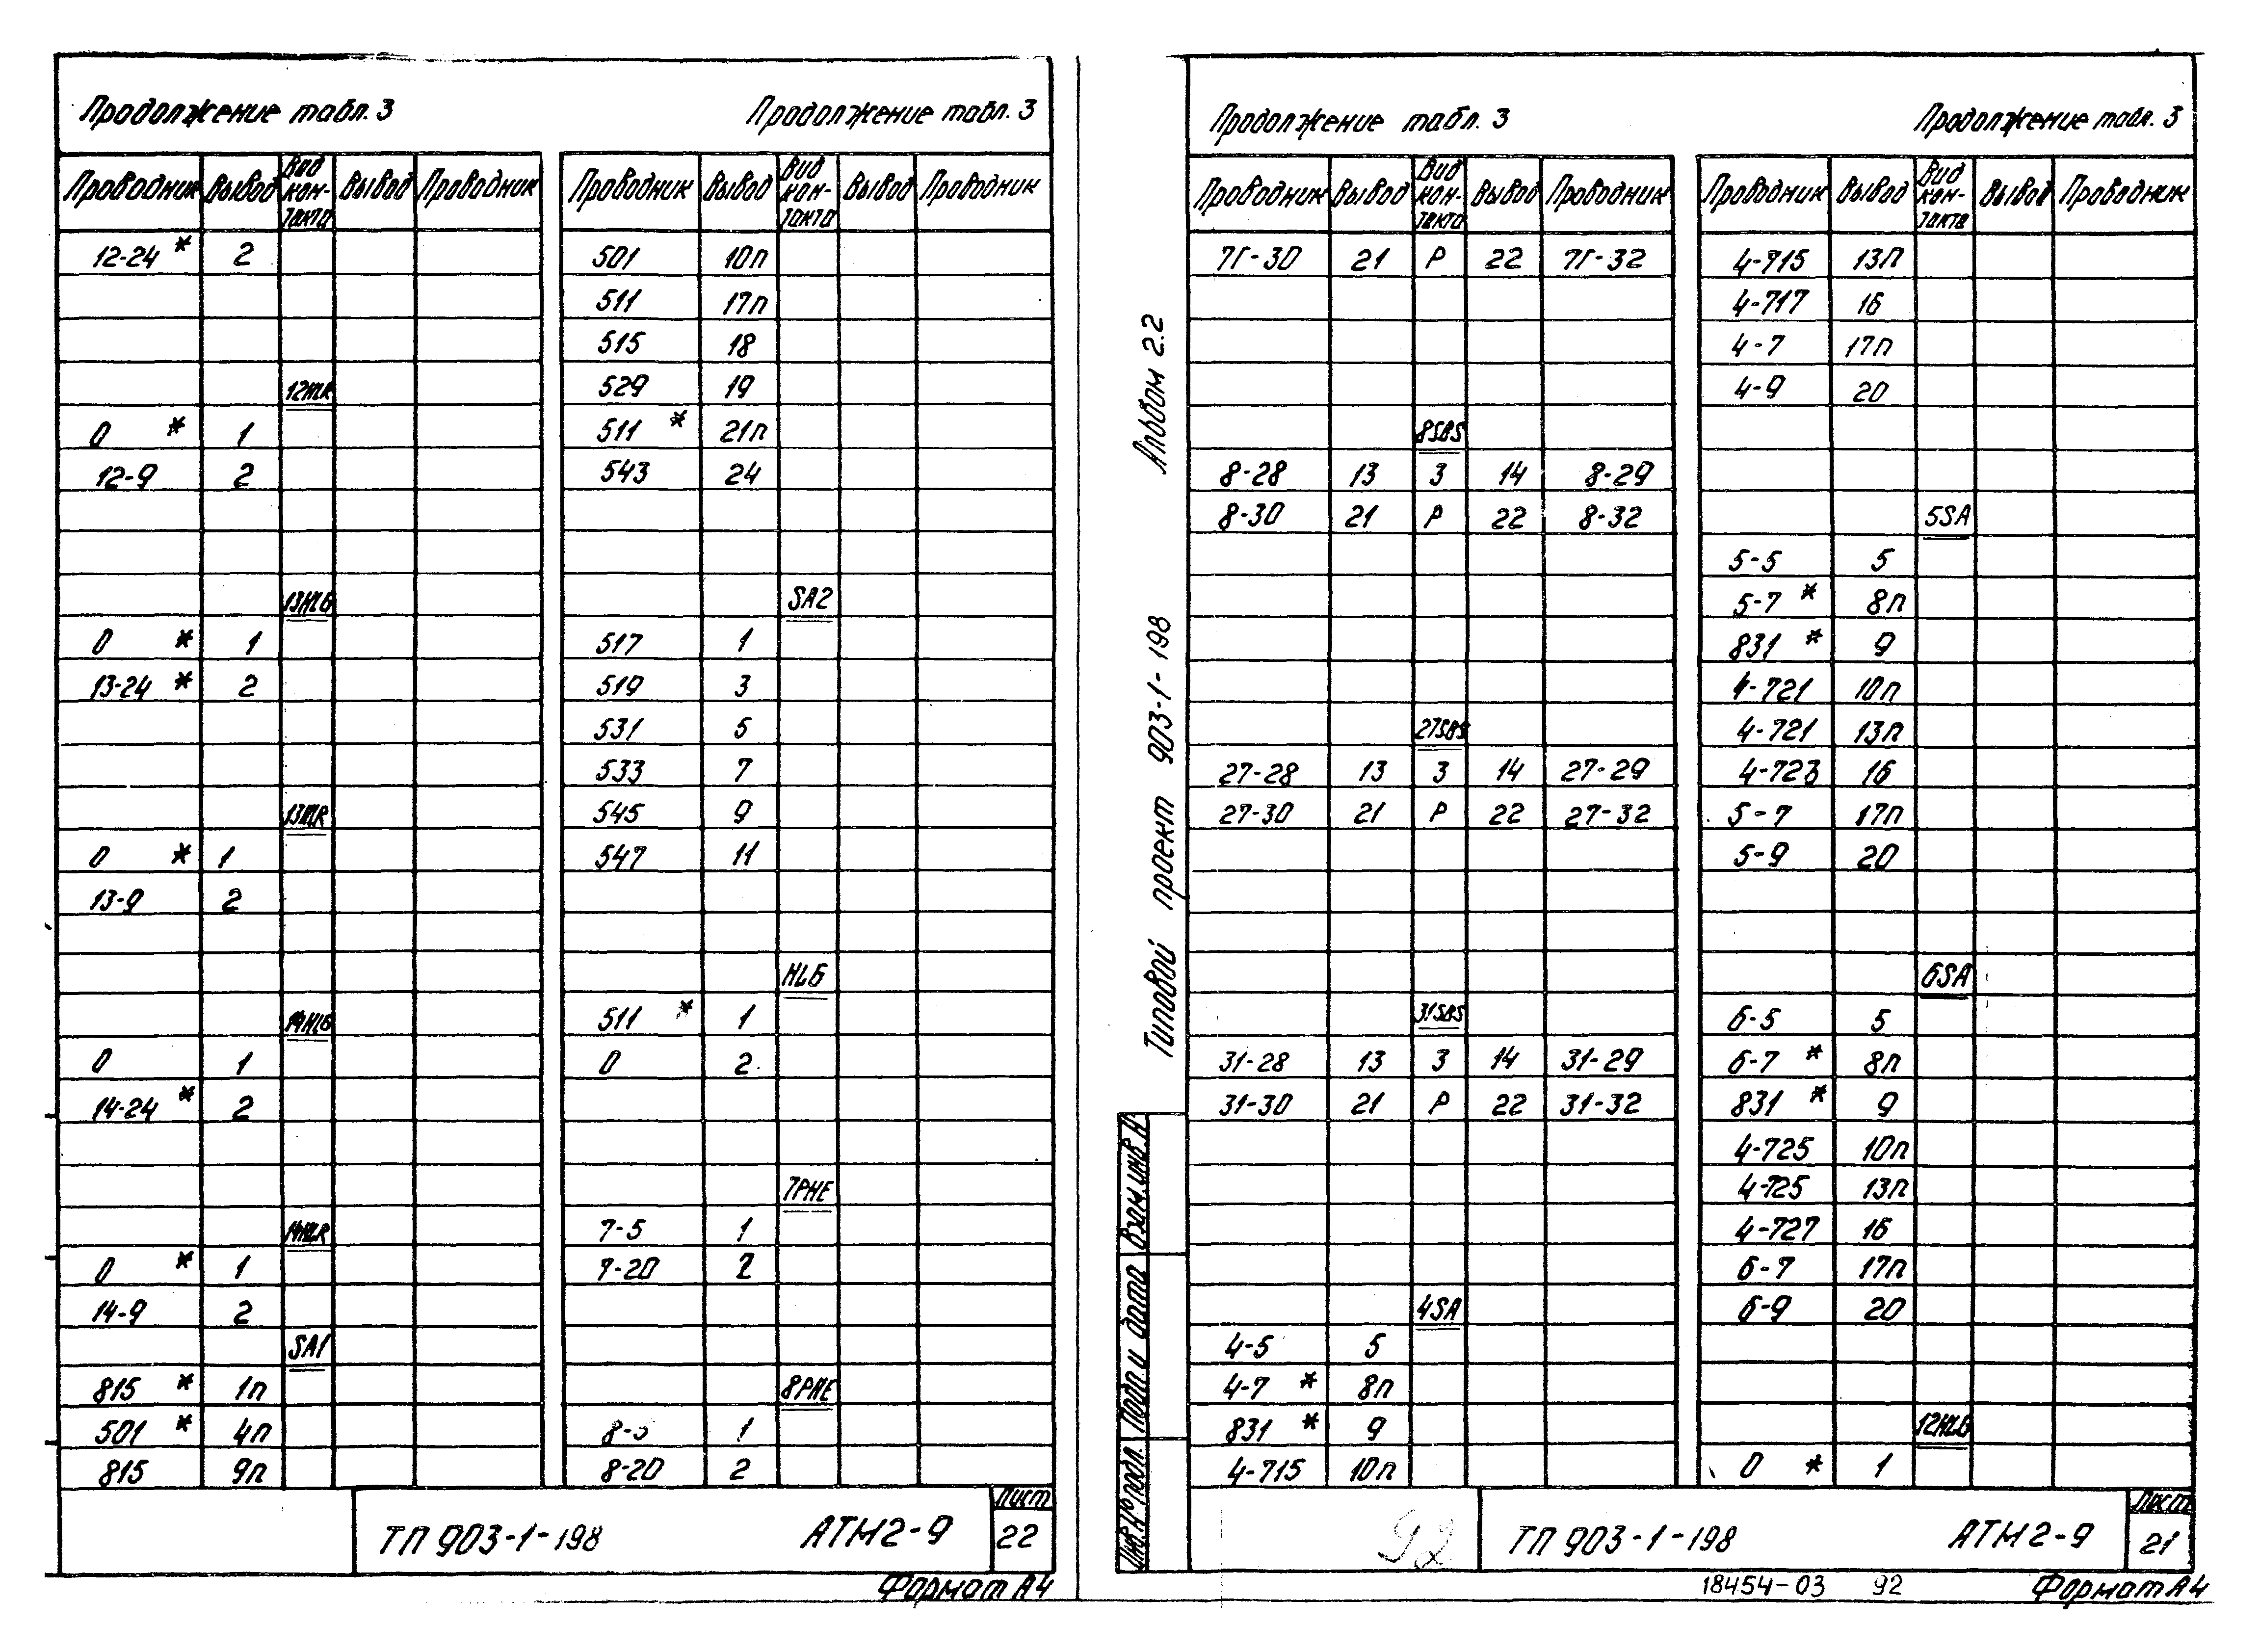 Продолжение табл. 3
Проводник Вывод Вид контакта Вывод Проводник
12-24 * 2
12HLR
0 * 1
12-9 2
13HLG
0 * 1
13-24 * 2
13HLR
0 * 1
13-9 2
14HLG
0 1
14-24 * 2
14HLR
0 * 1
14-9 2
SA1
815 * 1п
501 * 4п
815 9п
Продолжение табл. 3
Проводник Вывод Вид кон-такта Вывод Проводник
501 10п
511 17п
515 18
529 19
511 * 21п
543 24
SA2
517 1
519 3
531 5
533 7
545 9
547 11
HLG
511 * 1
0 2
7PHE
7-5 1
7-20 2
8PHE
8-5 1
8-20 2
ТП 903-1-198 АТМ2-9
Лист
22
Формат А4
Альбом 2.2
Типовой проект 903-1-198
Взам. инв. №
Подп. и дата
Инв. № подл.
Продолжение табл. 3
Проводник Вывод Вид кон-такта Вывод Проводник
7Г-30 21 Р 22 7Г-32
8SBS
8-28 13 З 14 8-29
8-30 21 Р 22 8-32
27SBS
27-28 13 З 14 27-29
27-30 21 Р 22 27-32
31SBS
31-28 13 З 14 31-29
31-30 21 Р 22 31-32
4SA
4-5 5
4-7 * 8п
831 * 9
4-715 10п
Продолжение табл. 3
Проводник Вывод Вид кон-такта Вывод Проводник
4-715 13п
4-717 16
4-7 17п
4-9 20
5SA
5-5 5
5-7 * 8п
831 * 9
4-721 10п
4-721 13п
4-723 16
5-7 17п
5-9 20
6SA
6-5 5
6-7 * 8п
831 * 9
4-725 10п
4-725 13п
4-727 16
6-7 17п
6-9 20
12HLG
0 * 1
92
ТП 903-1-198 АТМ2-9
Лист
21
18454-03 92
Формат А4